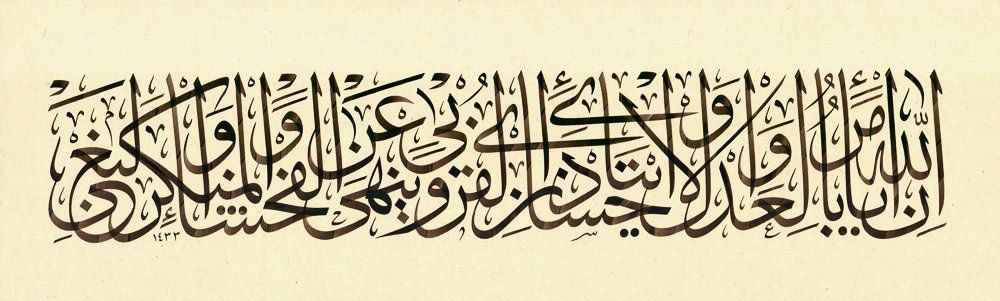 إن الله يأمر بالعدل والإحسان وإيتائ ذي القربى وينهى عن الفحشاء والمنكر والبغي
١٤٣٣